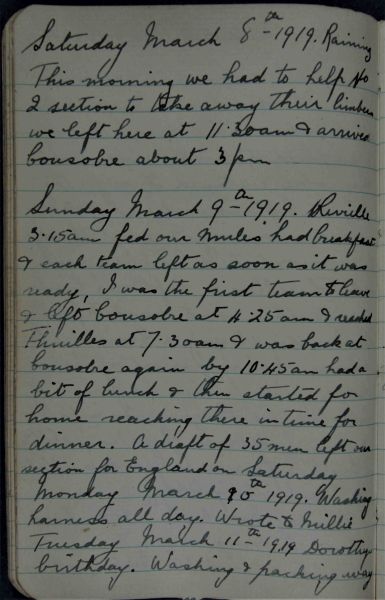 Saturday March 8th 1919. Raining
This morning we had to help No
2 section to take away their limbers
we left here at 11.30am & arrived
bousobre about 3 pm
Sunday March 9th 1919. Rivielle
3.15am fed our mules had breakfast
& each team left as soon as it was
ready, I was the first team to leave
& left bousobre at 4.25am & reached
Thuilles at 7.30am & was back at
bousobre again by 10.45am had a
bit of lunch & then started for
home reaching there in time for
dinner. A draft of 35 men left our
section for England on Saturday
Monday March 10th 1919. Washing
harness all day. Wrote to Millie
Tuesday March 11th 1919 Dorothy
birthday. Washing & packing away